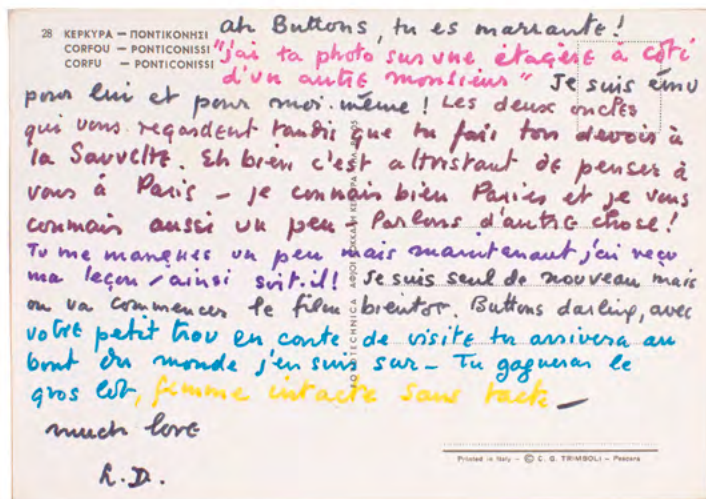 28 ΚΕΡΚΥΡΑ — ΠΟΝΤΙΚΟΝΗΣΙ
CORFOU — PONTICONISSI
CORFU — PONTICONISSI
ah Buttons, tu es marrante!
"j'ai ta photo sur une étagère à coté
d'un autre monsieur" Je suis ému
pour lui et pour moi-même! Les deux oncles
qui vous regardent tandis que tu fais ton devoir à
la Sauvette. Eh bien c'est attristant de penser à
vous à Paris — je connais bien Paris et je vous
connais aussi un peu — Parlons d'autre chose!
Tu me manques un peu mais maintenant j'ai reçu
ma leçon / ainsi soit-il! Je suis seul de nouveau mais
on va commencer le film bientot. Buttons darling, avec
votre petit trou en conte de visite tu arrivera au
bout du monde j'en suis sur — Tu gagneras le
gros lot, femme intacte sans tacte —
much love
L.D.
Printed in Italy - © C. G. TRIMBOLI - Pescara